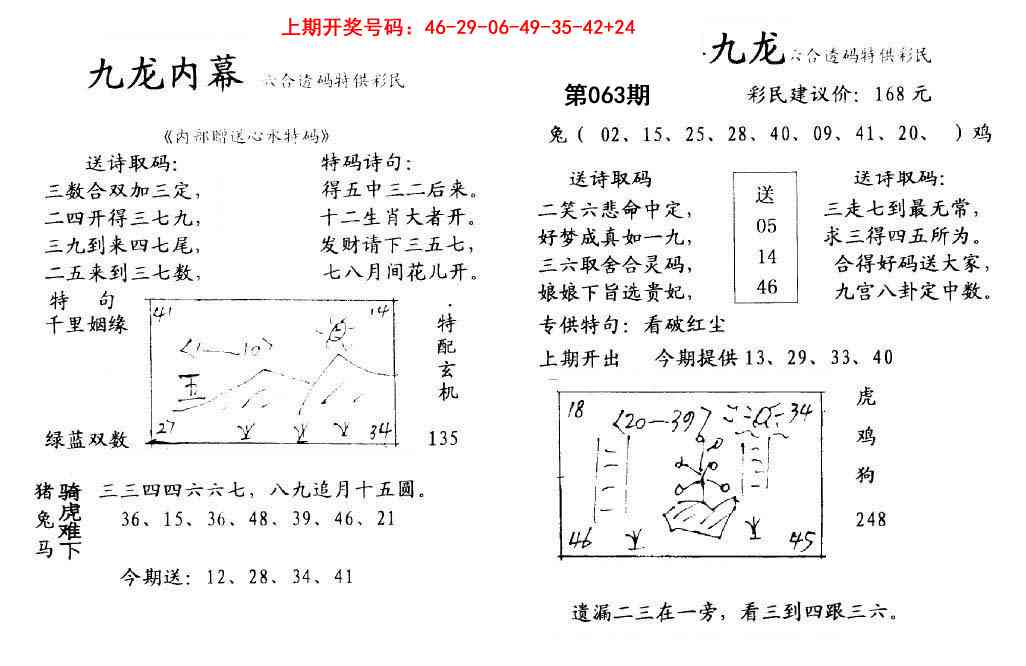 上期开奖号码：46-29-06-49-35-42+24
九龙内幕 六合透码特供彩民
《内部赠送心水特码》
送诗取码： 特码诗句：
三数合双加三定， 得五中三二后来。
二四开得三七九， 十二生肖大者开。
三九到来四七尾， 发财请下三五七，
二五来到三七数， 七八月间花儿开。
特 句
千里姻缘
绿蓝双数
41 14
〈1—10〉
玉
27 34
特配玄机
135
猪兔马
骑虎难下
三三四四六六七，八九追月十五圆。
36、15、36、48、39、46、21
今期送：12、28、34、41
九龙 六合透码特供彩民
第063期 彩民建议价：168元
兔（ 02、15、25、28、40、09、41、20、 ）鸡
送诗取码 送诗取码：
二笑六悲命中定， 三走七到最无常，
好梦成真如一九， 求三得四五所为。
三六取舍合灵码， 合得好码送大家，
娘娘下旨选贵妃， 九宫八卦定中数。
送
05
14
46
专供特句：看破红尘
上期开出 今期提供13、29、33、40
18 〈20—39〉 34
46 45
虎
鸡
狗
248
遗漏二三在一旁，看三到四跟三六。